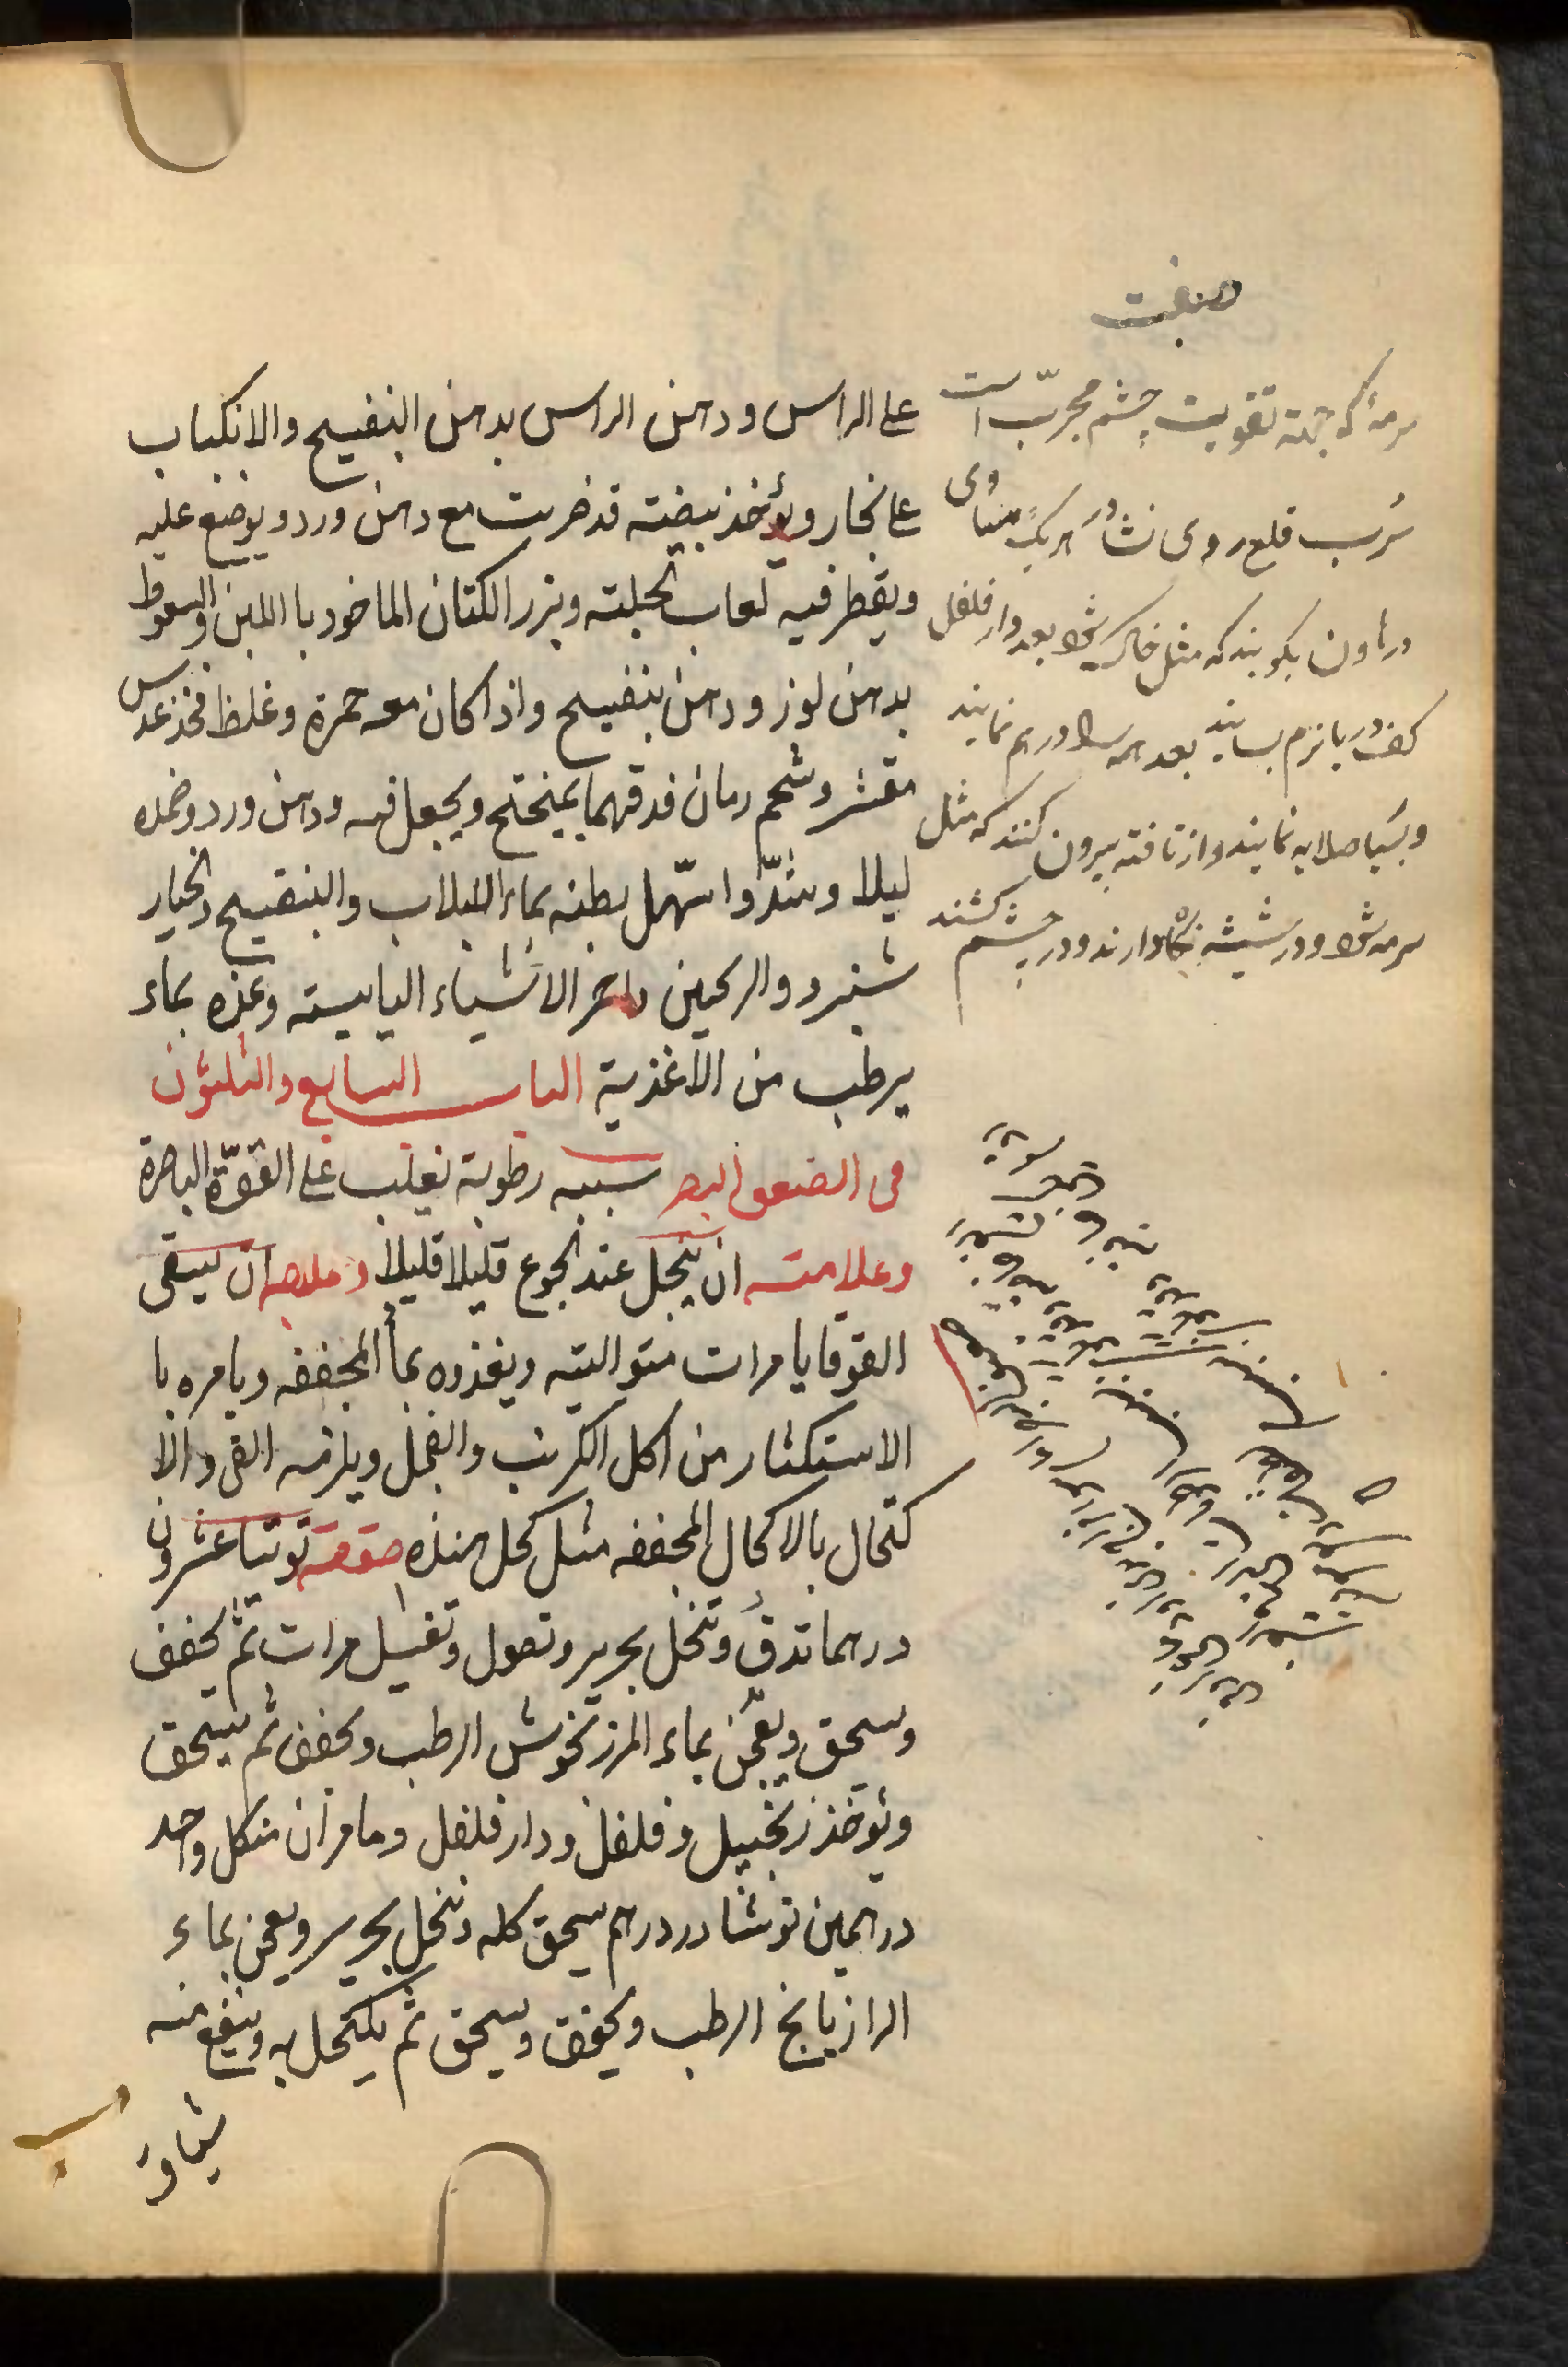 على الراس ودهن الراس بدهن البنفسج والانكباب
على بخار ويؤخذ بيضة قد ضربت مع دهن ورد ويوضع عليه
ويقطر فيه لعاب الحلبته وبزر الكتان الماخود با اللبن والسعوط
بدهن لوز ودهن بنفسج واذا كان معه حمرة وغلظ فخذ عدس
مقشر وشحم رمان فدقهما بميفختج ويجعل فيه ودهن ورد وضمده
ليلا وشدّ واسّهل بطنه بماء اللبلاب والبنفسج والخيار
شنبر والترنجبين واحذر الاشياء اليابسته وغذه بماء
يرطب من الاغذية الباب السابع والثلثون
فى الضعف البصر سببه رطوبة تغلب على القوّة الباصرة
وعلامته ان ينجل عند الجوع قليلا قليلا وعلاجه ان يسقى
القوقايا مرات متواليته ويغذوه بما المجففه ويامره با
الاستكثار من اكل الكرنب والفجل ويلزمه القى والا
كتحال بالاكحال المجففه مثل كحل هنذه صفته توتيا عشرون
درهما تدق وتنخل بحرير وتصول وتغسل مرات ثم يجفف
ويسحق ويعجن بماء المرزنخوش الرطب ويجفف ثم يسحق
ويؤخذ زنجبيل وفلفل ودارفلفل وماميران من كل واحد
درهمين نوشادر درهم يسحق كله وينخل بحرير ويعجن بماء
الرازيانج الرطب ويجفف ويسحق ثم يكتحل به وينفع منه
شياف
صنعت
سرمۀ كه جهته تقويت چشم مجرّب است
سُرب قلع روى نشادر هر يك مساوى
در هاون بكوبند كه مثل خاك شود بعد دارفلفل
كف دريا نرم بسايند بعد همه را درهم نمايند
وبسيا صلايه نمايند واز تافته بيرون كنند كه مثل
سرمه شود ودر شيشه نگاه دارند ودر چشم كشند